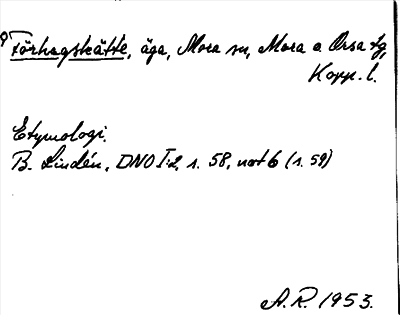 Förhagskätte, äga, Mora sn, Mora o Orsa tg,
Kopp. l.
Etymologi.
B. Lindén, DNO I:2, s. 58, not 6 (s. 59)
A.R. 1953.